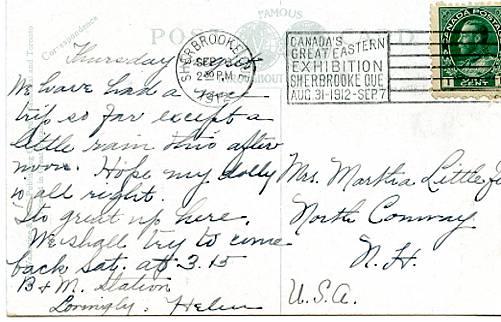 FAMOUS
POST CARD
THROUGHOUT
Correspondence
and Toronto
SHERBROOKE
SEP 5
2 30 P.M.
1912
CANADA'S
GREAT EASTERN
EXHIBITION
SHERBROOKE QUE
AUG. 31-1912-SEP. 7
CANADA POSTAGE
1 1
CENT
Thursday
We have had a fine
trip so far except a
little rain this after
noon. Hope my dolly
is all right.
Its great up here.
We shall try to come
back Sat. at 3.15
B + M. Station
Lovingly. Helen
Mrs. Martha Littlef
North Conway
N. H.
U.S.A.